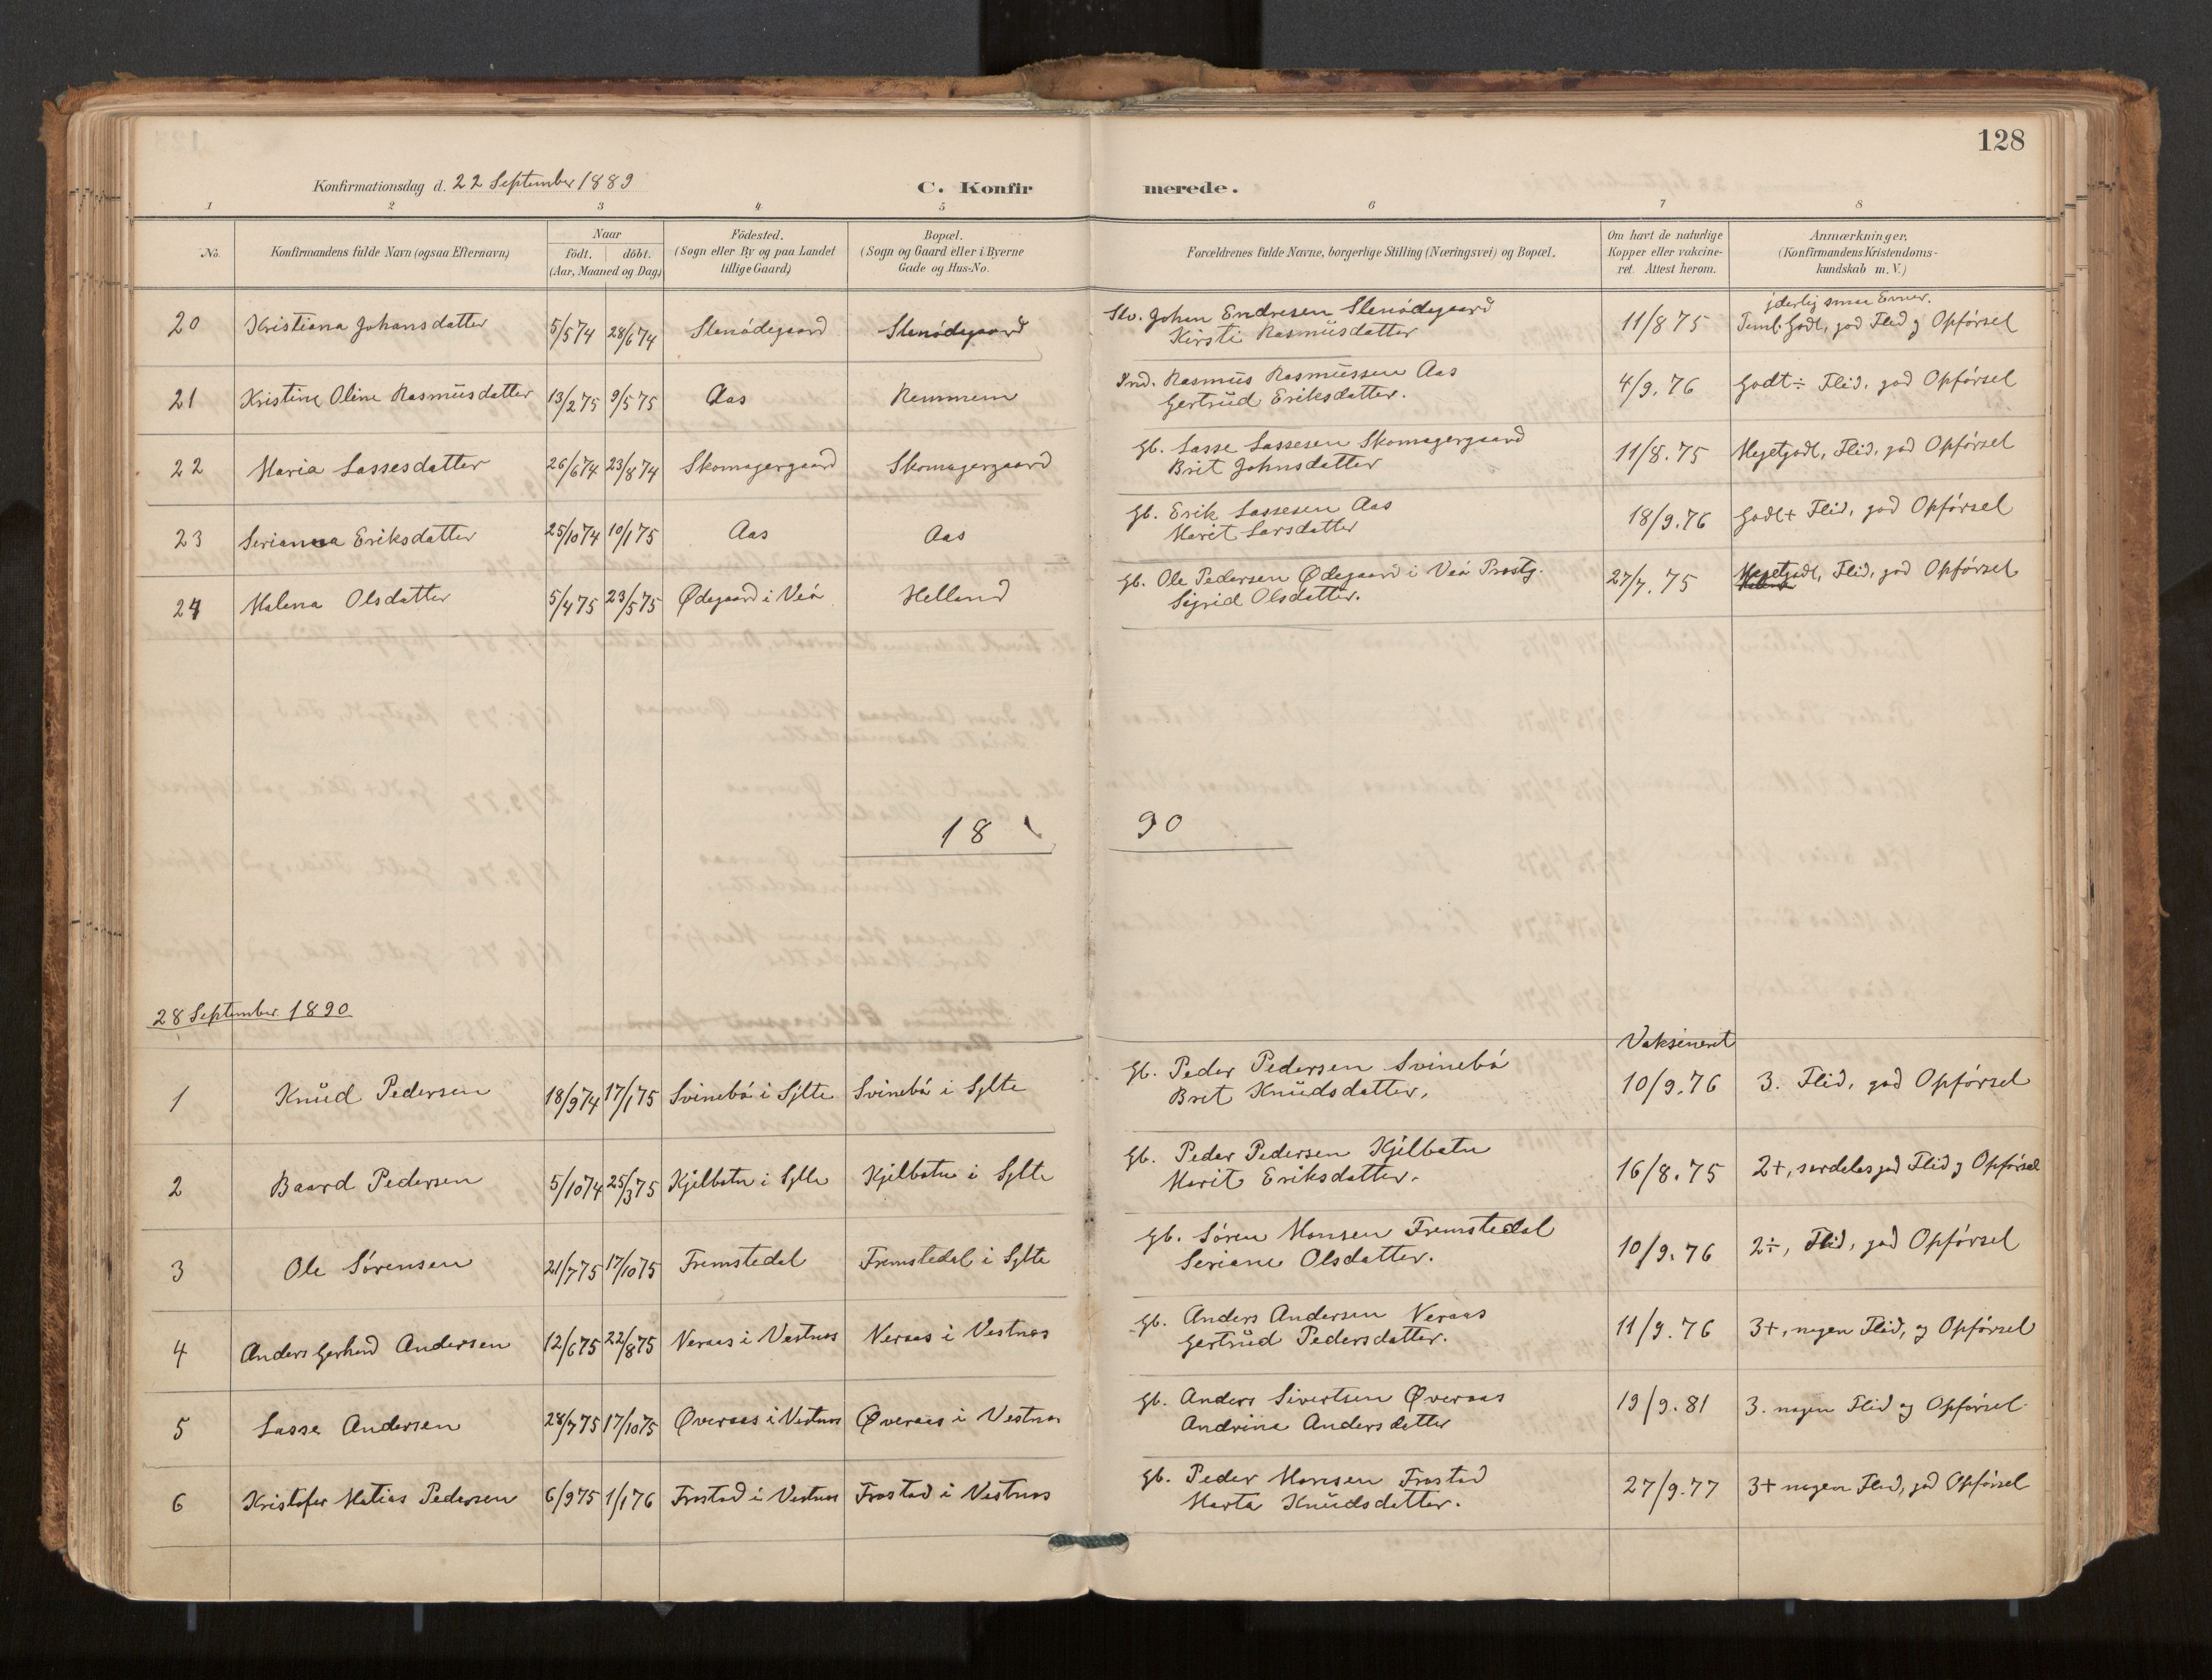 128
Konfirmationsdag d. 22 September 1889
C. Konfir
merede.
1 2 3 4 5 6 7 8
No. Konfirmandens fulde Navn (ogsaa Efternavn) Naar födt, döbt. (Aar, Maaned og Dag) Födested. (Sogn eller By og paa Landet tillige Gaard) Bopæl. (Sogn og Gaard eller i Byerne Gade og Hus-No. Forældrenes fulde Navne, borgerlige Stilling (Næringsvei) og Bopæl. Om havt de naturlige Kopper eller vakcineret. Attest herom. Anmærkninger, (Konfirmandens Kristendomskundskab m. V.)
20 Kristiana Johansdatter 5/5 74 28/6 74 Stenödegaard Stenödegaard Slv. Johan Endresen Stenödegaard
Kirsti Rasmusdatter 11/8 75 Teml. Godt, god Flid og Opförsel
21 Kristine Oline Rasmusdatter 13/2 75 9/5 75 Aas Remmem Ind. Rasmus Rasmussen Aas
Gertrud Eriksdatter. 4/9. 76 Godt÷ Flid, god Opförsel
22 Maria Lassesdatter 26/6 74 23/8 74 Skomagergaard Skomagergaard Gb. Lasse Lassesen Skomagergaard
Brit Johnsdatter 11/8. 75 Megetgodt, Flid, god Opförsel
23 Serianna Eriksdatter 25/10 74 10/1 75 Aas Aas Gb. Erik Lassesen Aas
Marit Larsdatter 18/9. 76 Godt+ Flid, god Opförsel
24 Malena Olsdatter 5/4 75 23/5 75 Ødegaard i Veö Helland Gb. Ole Pedersen Ødegaard i Veö Prestg.
Sigrid Olsdatter. 27/7. 75 Megetgodt, Flid, god Opförsel
18 90
28 September 1890
Vaksineret
1 Knud Pedersen 18/9 74 17/1 75 Svinebö i Sylte Svinebö i Sylte Gb. Peder Pedersen Svinebö
Brit Knudsdatter, 10/9. 76 3. Flid, god Opförsel
2 Baard Pedersen 5/10 74 25/3 75 Kjelbotn i Sylte Kjelbotn i Sylte Gb. Peder Pedersen Kjelbotn
Marit Eriksdatter. 16/8. 75 2+, særdeles god Flid og Opförsel
3 Ole Sörensen 21/7 75 17/10 75 Fremstedal Fremstedal i Sylte Gb. Sören Monsen Fremstedal
Seriane Olsdatter. 10/9. 76 2÷, Flid, god Opförsel
4 Anders Gerhard Andersen 12/6 75 22/8 75 Neraas i Vestnes Neraas i Vestnes Gb. Anders Andersen Neraas
Gertrud Pedersdatter. 11/9. 76 3+, nogen Flid, og Opförsel
5 Lasse Andersen 28/7 75 17/10 75 Øveraas i Vestnes Øveraas i Vestnes Gb. Anders Sivertsen Øveraas
Andrine Andersdatter 19/9. 81 3. nogen Flid og Opförsel
6 Kristofer Matias Pedersen 6/9 75 1/1 76 Frostad i Vestnes Frostad i Vestnes Gb. Peder Monsen Frostad
Marta Knudsdatter. 27/9. 77 3+ nogen Flid, god Opförsel